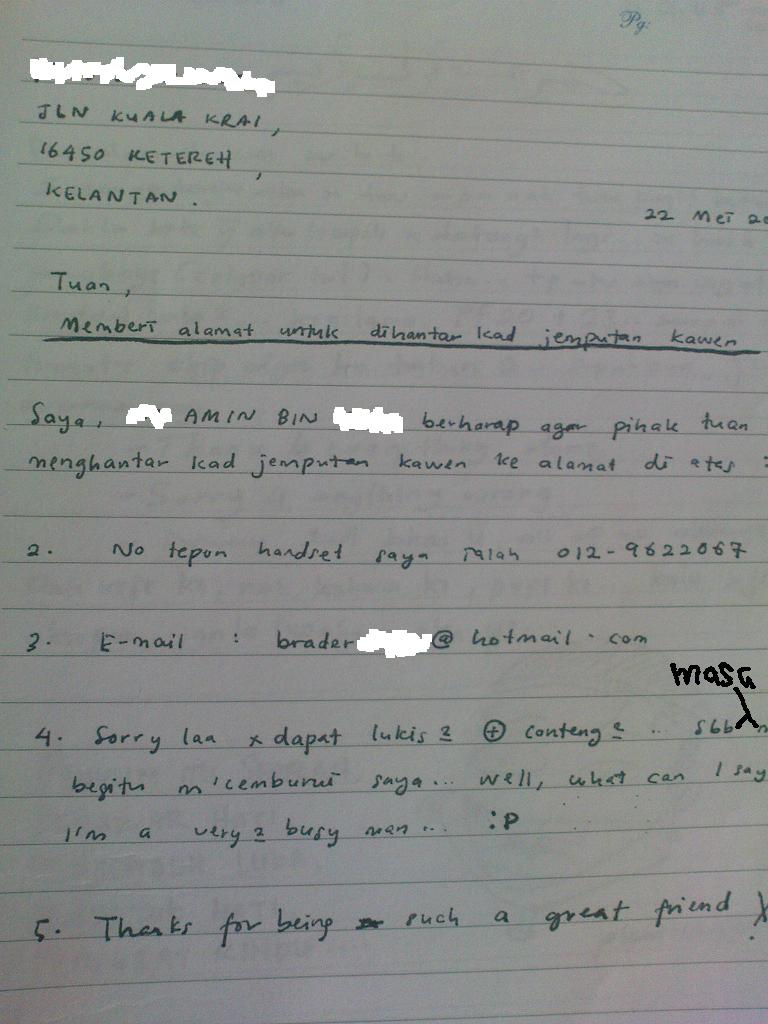 Pg:
JLN KUALA KRAI,
16450 KETEREH,
KELANTAN.
22 Mei 20
Tuan,
Memberi alamat untuk dihantar kad jemputan kawen
Saya, AMIN BIN berharap agar pihak tuan
menghantar kad jemputan kawen ke alamat di atas :
2. No tepon handset saya ialah 012-9622067
3. E-mail : brader @ hotmail.com
masa
4. Sorry laa x dapat lukis2 ⊕ conteng2 ... sbb
begitu m'cemburui saya... well, what can I say
I'm a very2 busy man... :P
5. Thanks for being such a great friend